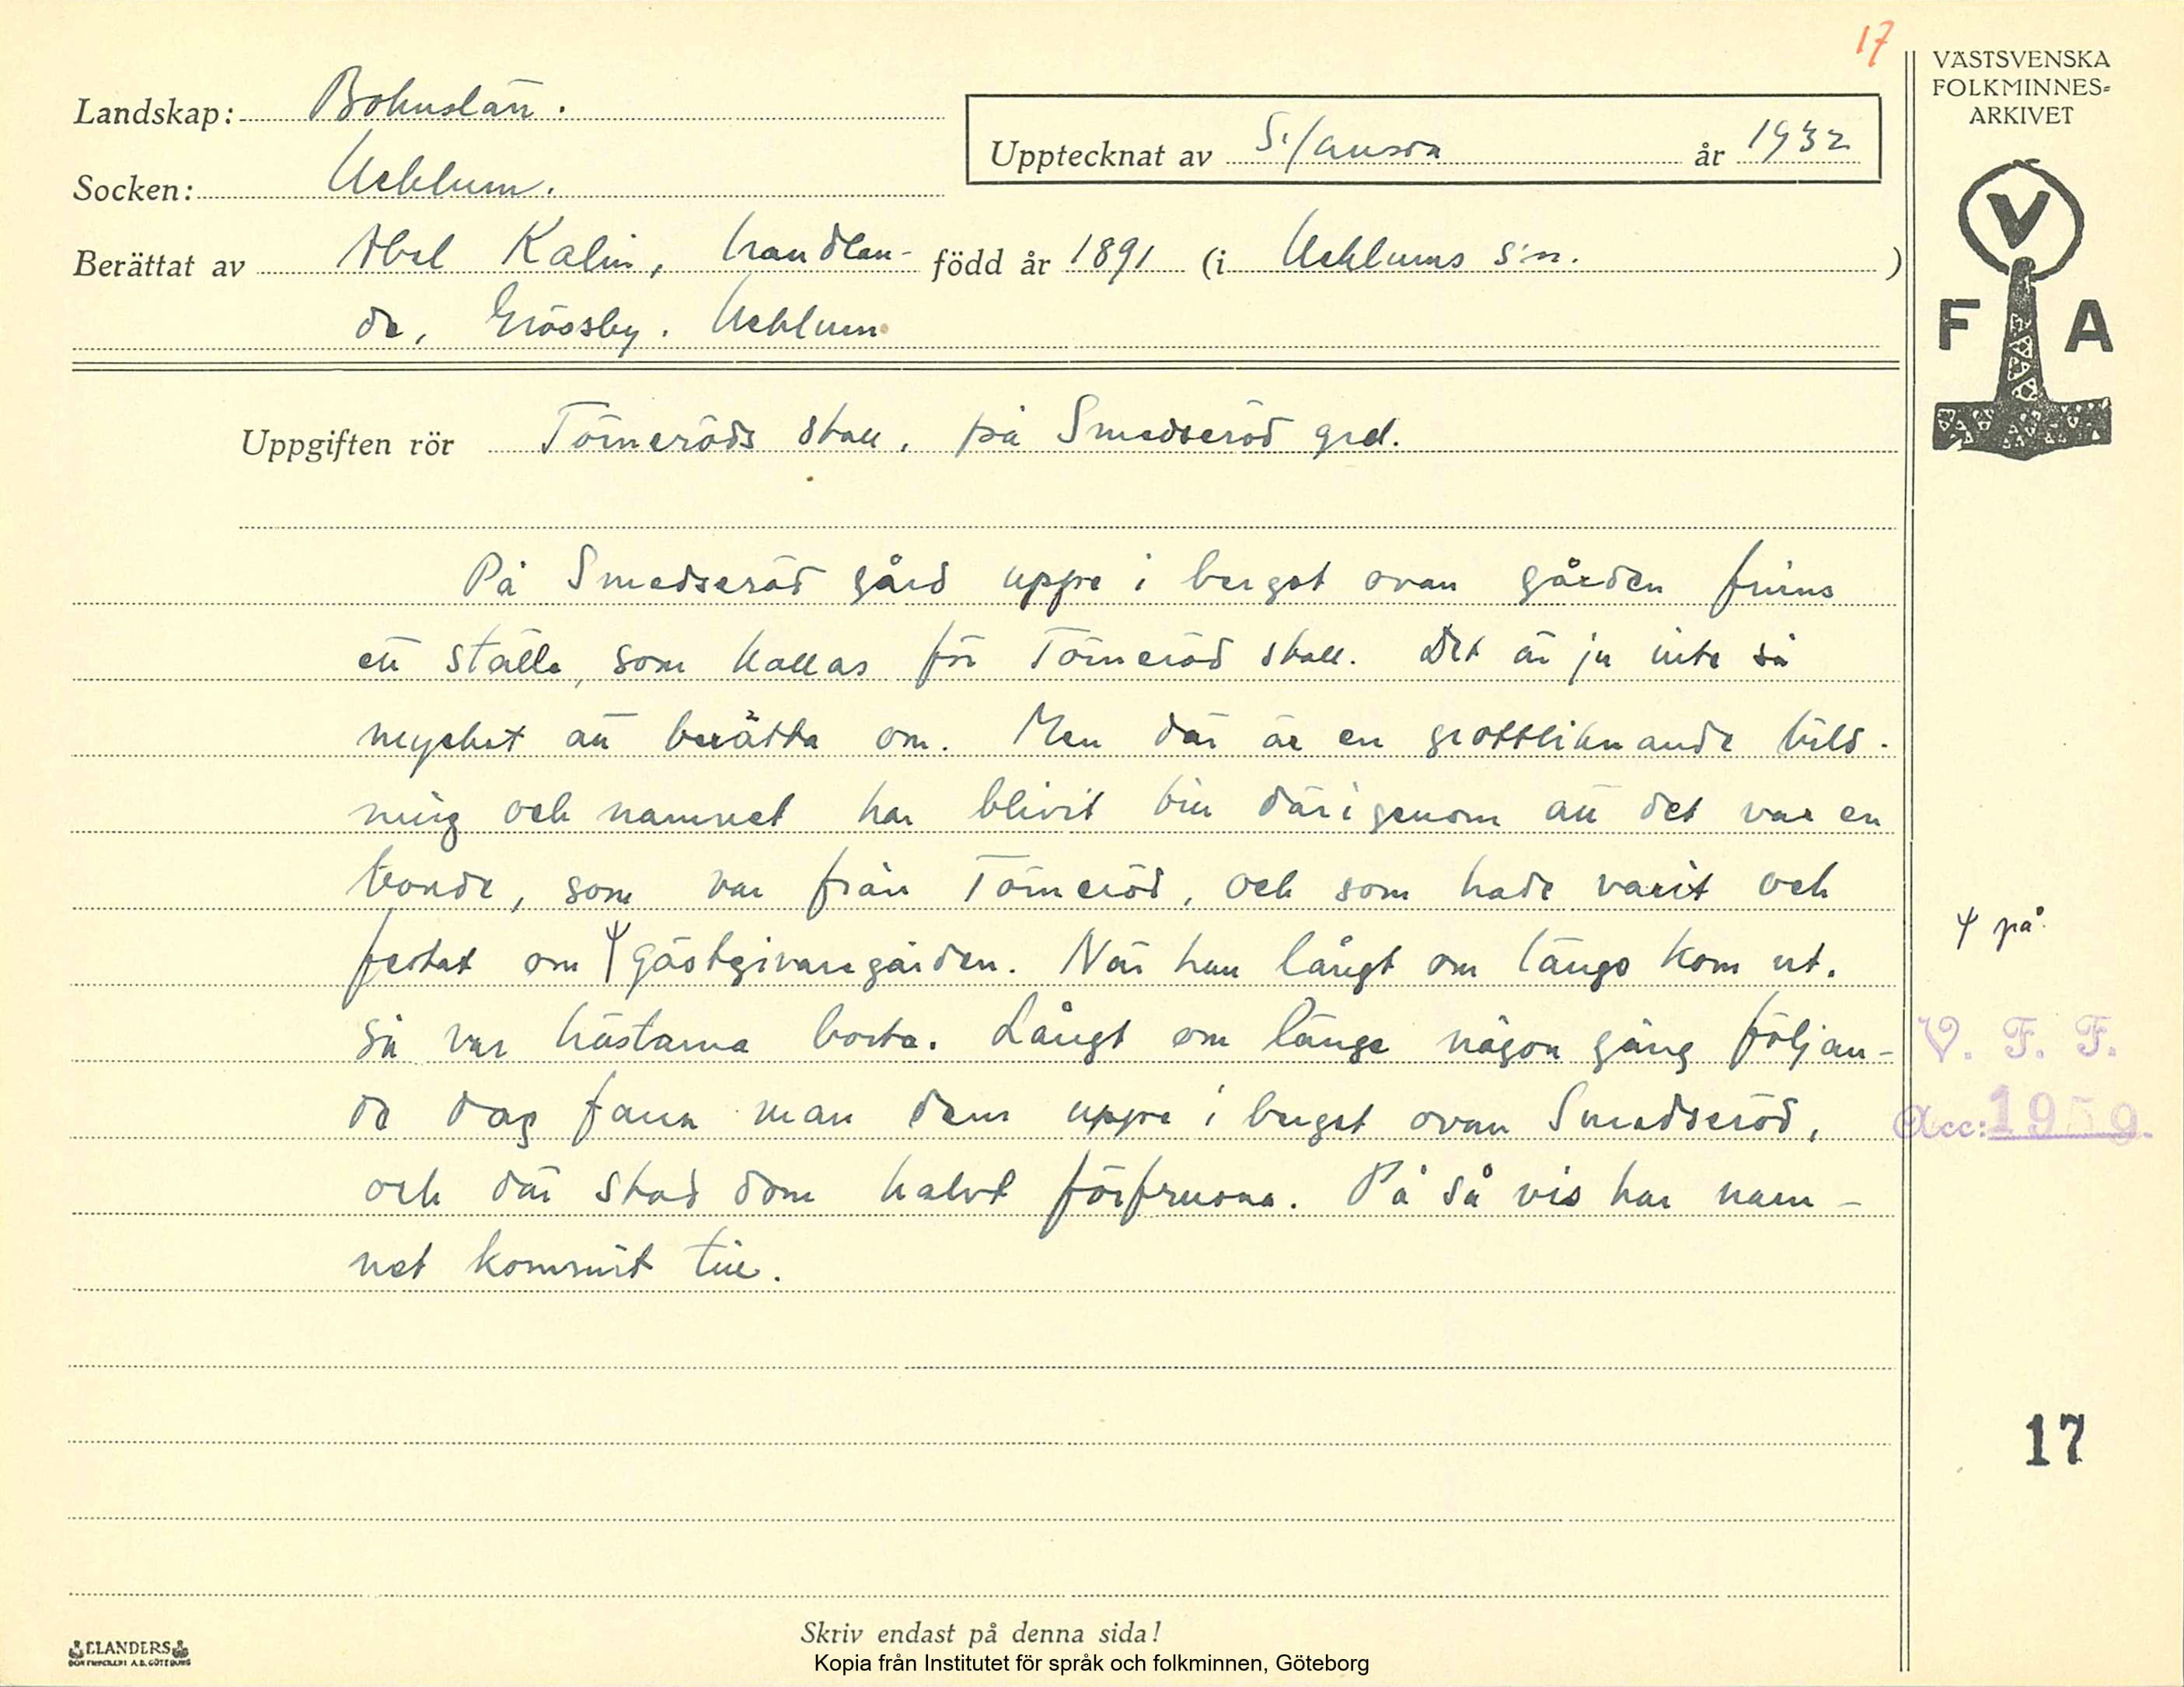 17
VÄSTSVENSKA
FOLKMINNES-
ARKIVET
Landskap: Bohuslän.
Upptecknat av S. Janson år 1932
Socken: Ucklum.
Berättat av Abel Kalin, handlan- född år 1891 (i Ucklums s:n. )
de, Grössby. Ucklum
V
F A
Uppgiften rör Törneröds stall, på Smedseröd grd.
På Smedseröd gård uppe i berget ovan gården finns
ett ställe, som kallas för Törneröd stall. Det är ju inte så
mycket att berätta om. Men där är en grottliknande bild-
ning och namnet har blivit till därigenom att det var en
bonde, som var från Törneröd, och som hade varit och
festat om Ψ gästgivaregården. När han långt om länge kom ut,
Ψ på
så var hästarna borta. Långt om länge någon gång följan-
V. F. F.
de dag fann man dem uppe i berget ovan Smedseröd,
Acc: 1959.
och där stod dom halvt förfrusna. På så vis har nam-
net kommit till.
17
Skriv endast på denna sida!
ELANDERS
BOKTRYCKERI A.B. GÖTEBORG
Kopia från Institutet för språk och folkminnen, Göteborg